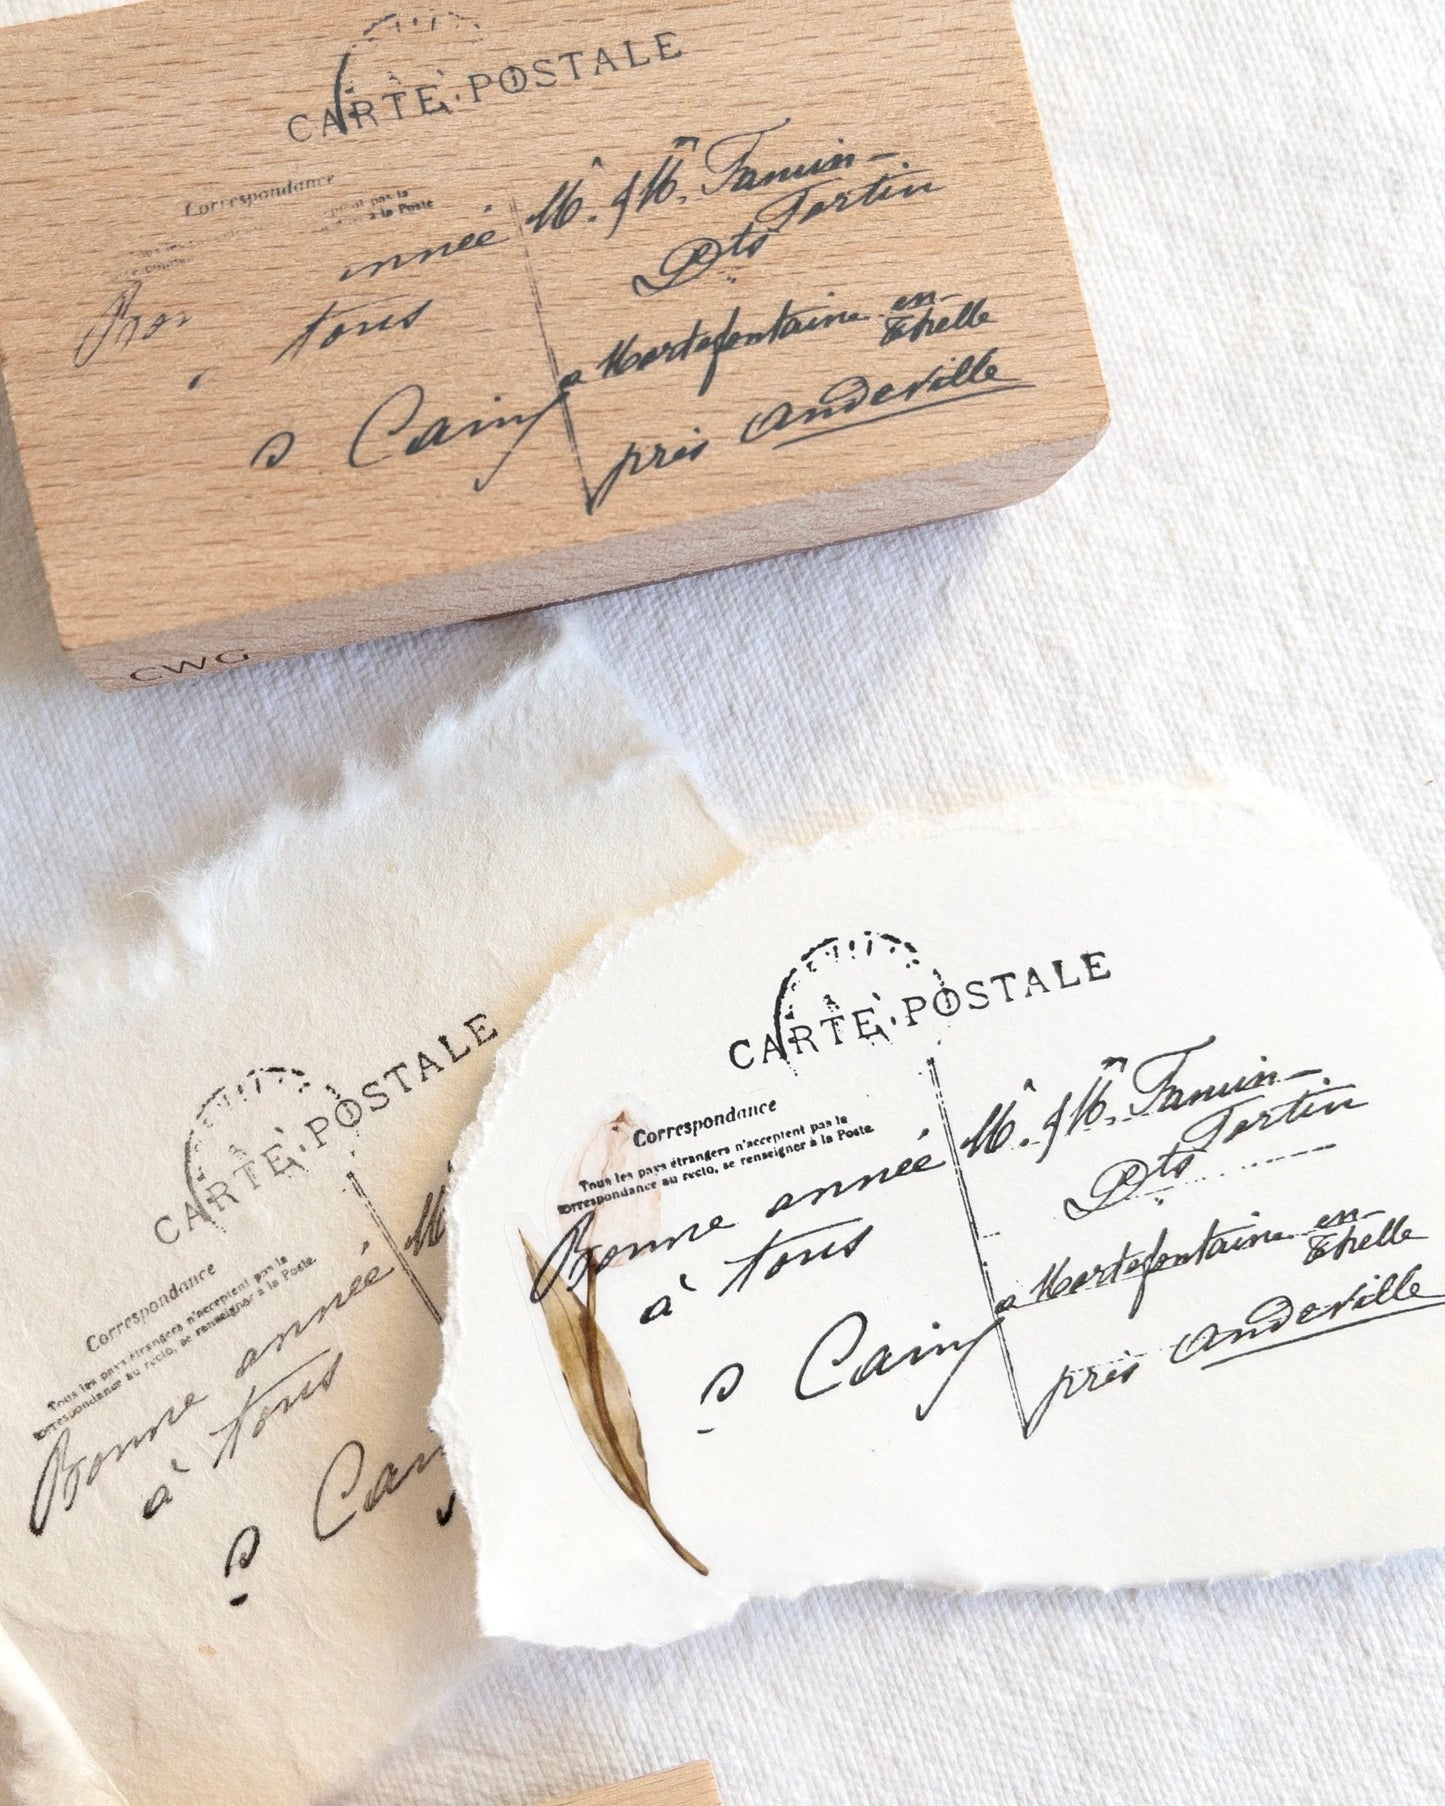 CARTE POSTALE
Correspondance
pas le
à la Poste
année
tous
Cairy
Mr. & Mm. Famin-
Fertin
Pts
à Mortefontaine en-
Thelle
près Andeville
CWG
CARTE POSTALE
Correspondance
Tous les pays étrangers n'acceptent pas la
correspondance au recto, se renseigner à la Poste.
Bonne année
à tous
CARTE POSTALE
Correspondance
Tous les pays étrangers n'acceptent pas la
correspondance au recto, se renseigner à la Poste.
Bonne année
à tous
Cairy
Mr. & Mm. Famin-
Fertin
Pts
à Mortefontaine en-
Thelle
près Andeville